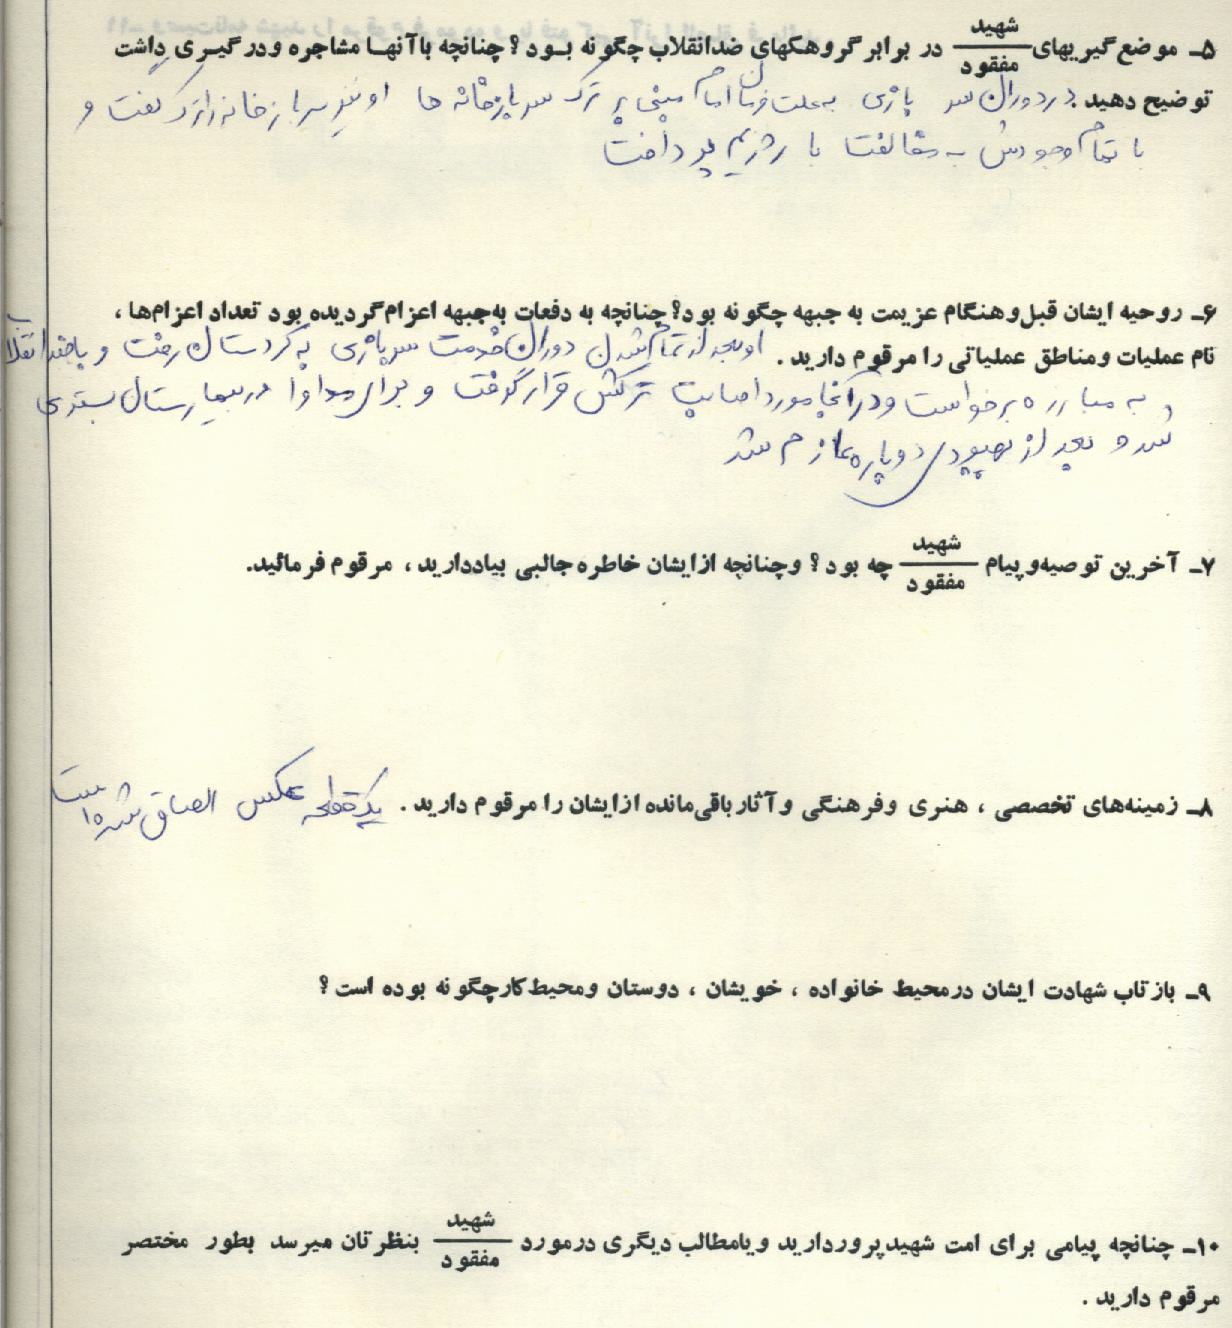 ۵ـ موضع‌گیریهای شهید / مفقود در برابر گروهکهای ضدانقلاب چگونه بود؟ چنانچه باآنها مشاجره ودرگیری داشت
توضیح دهید. در دوران سربازی به علت فرمان امام مبنی بر ترک سربازخانه ها او نیز سربازخانه را ترک گفت و
با تمام وجودش به مخالفت با رژیم پرداخت
۶ـ روحیه ایشان قبل‌وهنگام عزیمت به جبهه چگونه بود؟ چنانچه به دفعات به‌جبهه اعزام‌گردیده بود تعداد اعزام‌ها،
نام عملیات ومناطق عملیاتی را مرقوم دارید. او بعد از تمام شدن دوران خدمت سربازی به کردستان رفت و با ضد انقلاب
به مبارزه برخواست و در آنجا مورد اصابت ترکش قرار گرفت و برای مداوا در بیمارستان بستری
شد و بعد از بهبودی دوباره عازم شد
۷ـ آخرین توصیه‌وپیام شهید / مفقود چه بود؟ وچنانچه ازایشان خاطره جالبی بیاددارید، مرقوم فرمائید.
۸ـ زمینه‌های تخصصی، هنری وفرهنگی وآثارباقی‌مانده ازایشان را مرقوم دارید. یک قطعه عکس الصاق شده است
۹ـ بازتاب شهادت ایشان درمحیط خانواده، خویشان، دوستان ومحیط‌کارچگونه بوده است؟
۱۰ـ چنانچه پیامی برای امت شهیدپروردارید ویامطالب دیگری درمورد شهید / مفقود بنظرتان میرسد بطور مختصر
مرقوم دارید.